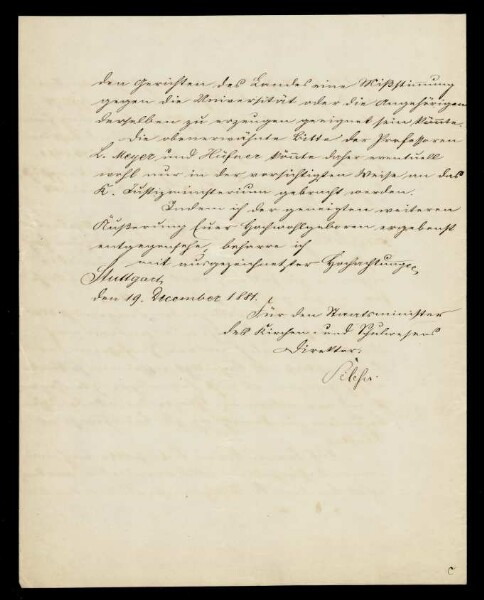 den Gerichten des Landes eine Mißstimmung
gegen die Universität oder die Angehörigen
derselben zu erzeugen geeignet sein könnte.
Die obenerwähnte Bitte der Professoren
L. Meyer und Hüfner könnte daher eventuell
wohl nur in der vorsichtigsten Weise an das
K. Justizministerium gebracht werden.
Indem ich der geneigten weiteren
Äußerung Euer Hochwohlgeboren ergebenst
entgegensehe, beharre ich
mit ausgezeichnetster Hochachtung
Stuttgart,
den 19. Dezember 1881.
Für den Staatsminister
des Kirchen- und Schulwesens
Direktor: